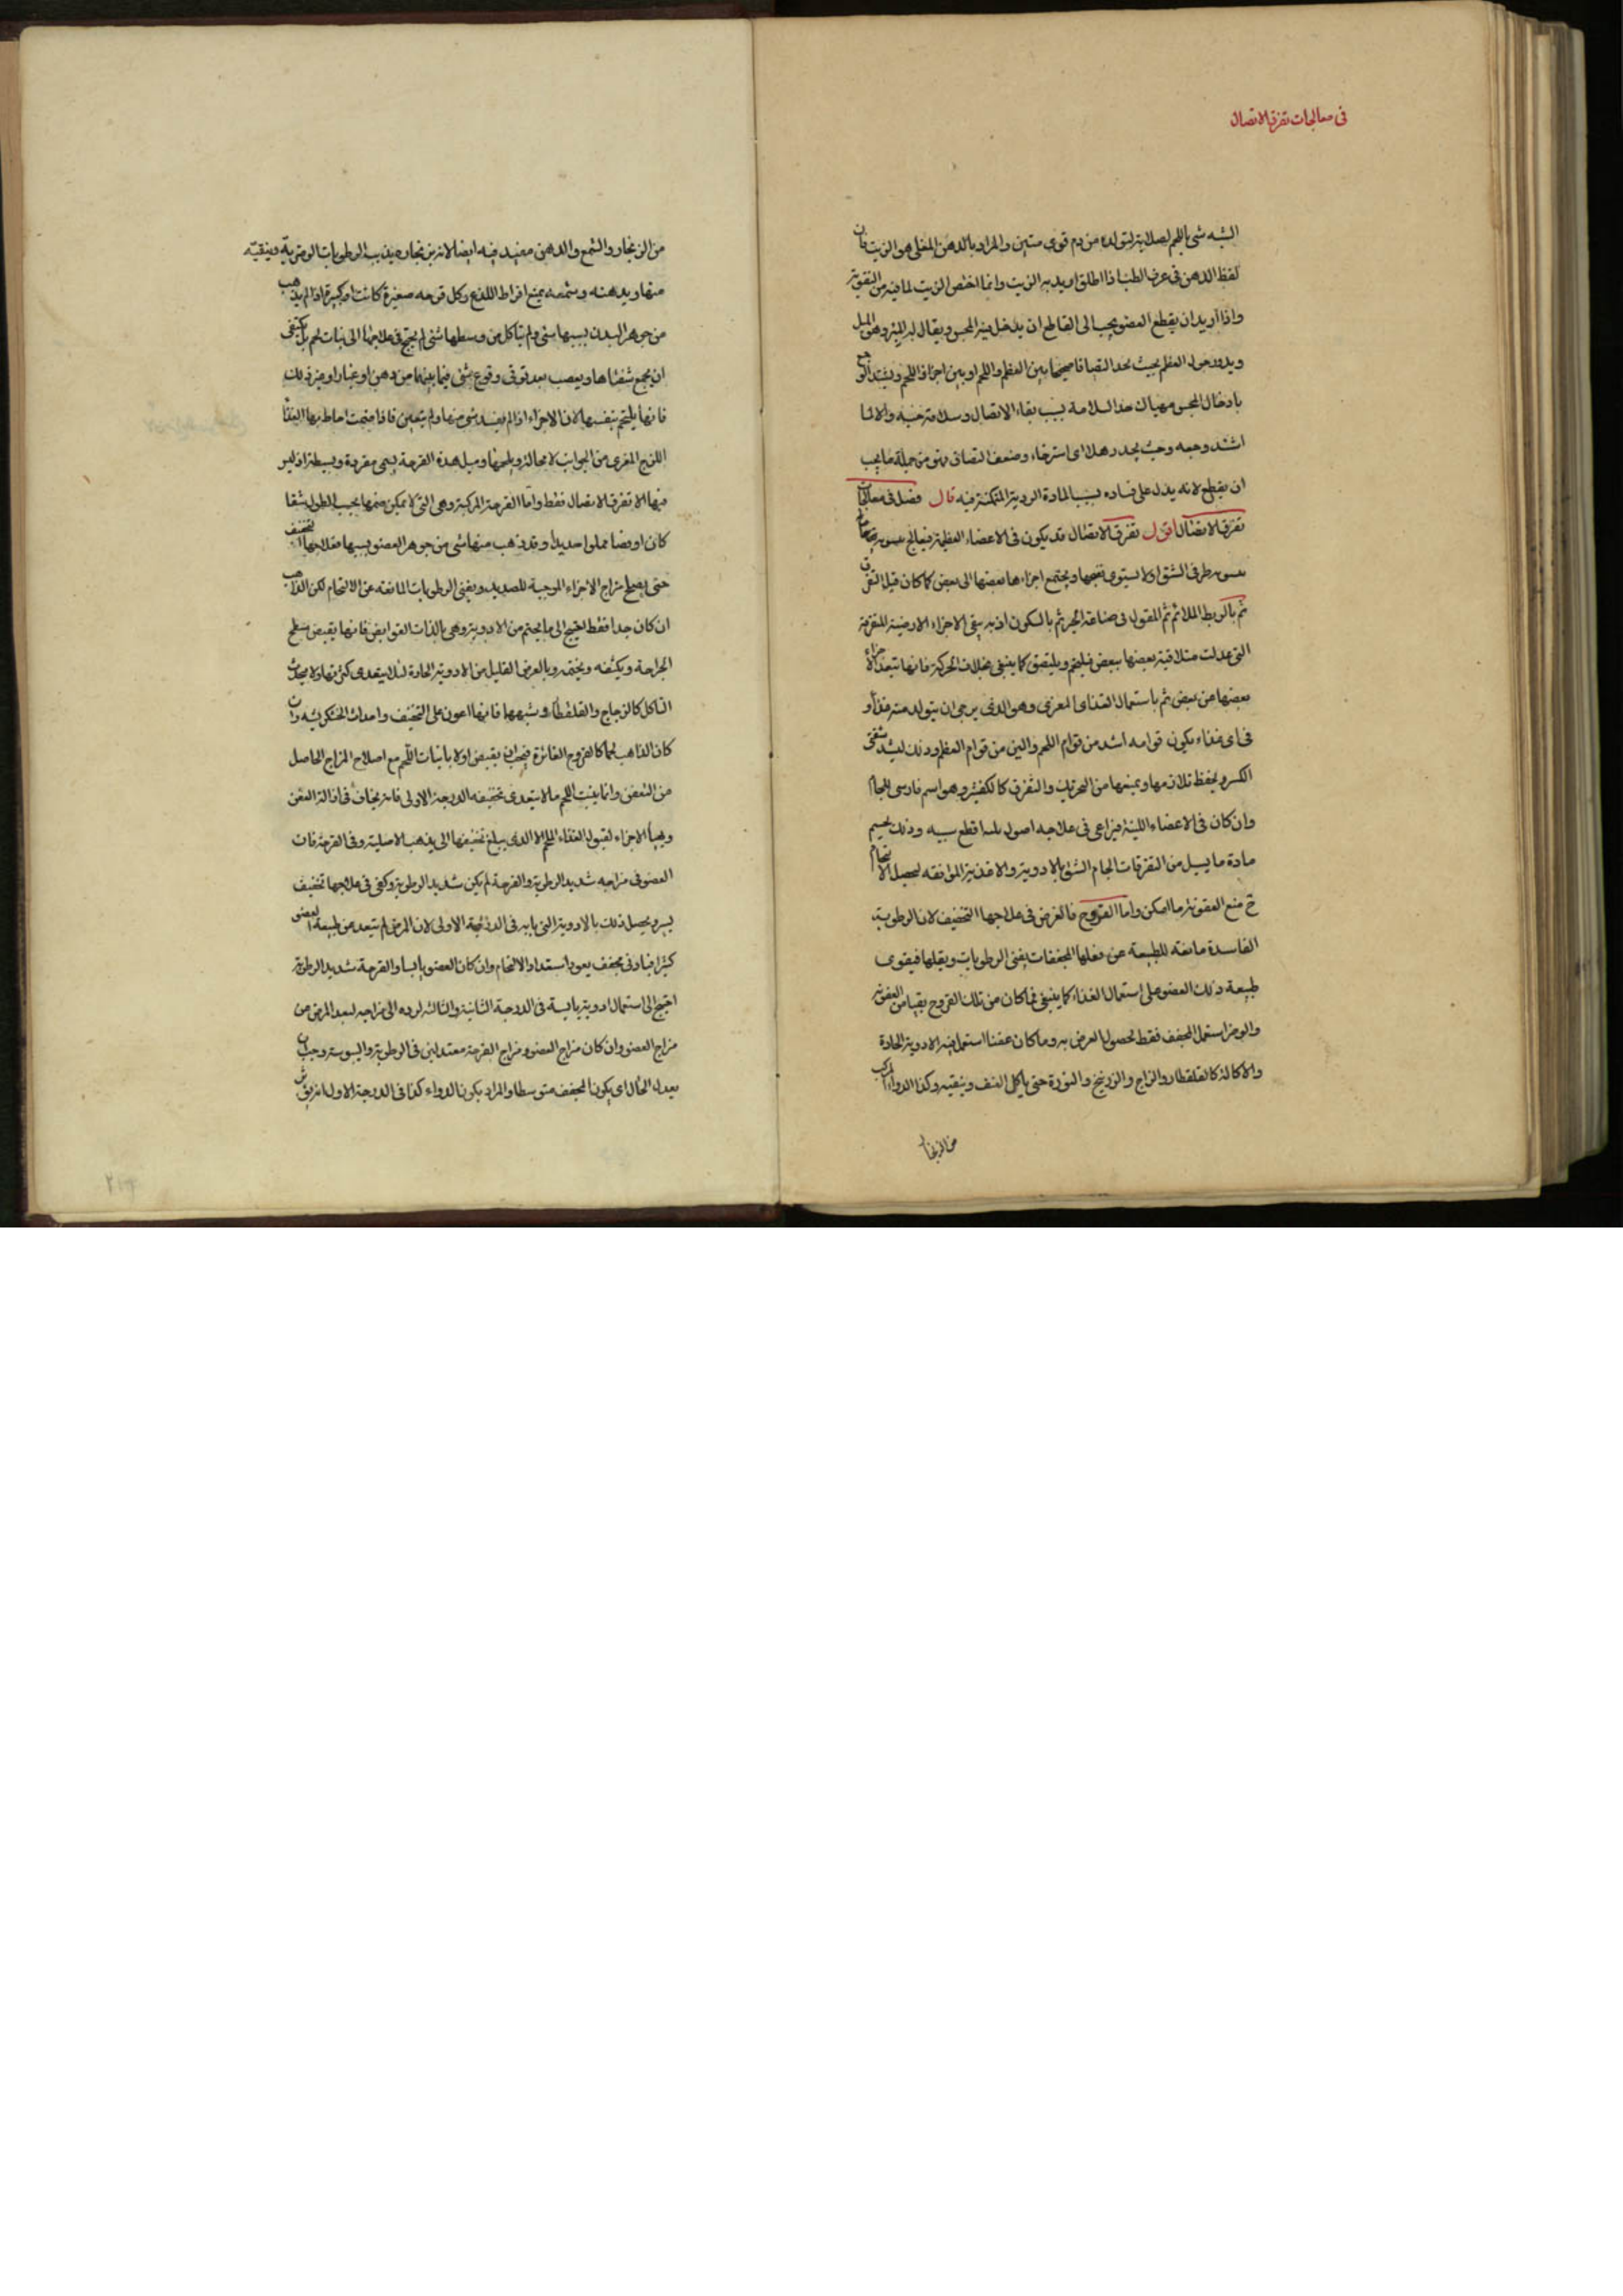 فى معالجات تفرق الاتصال
اشبه شئ باللحم لصلابته لتولده من دم قوى متين والمراد بالدهن المغلى هو الزيت فان
لفظ الدهن فى عرف الطب اذا اطلق اريد به الزيت وانما اختص الزيت لما فيه من التقوية
واذا اريد ان يقطع العضو يجب الى القاطع ان يدخل فيه المجس ويقال له الميرود هو الميل
ويدور حول العظم بحيث يجد التصاقا صحيحا بين العظم واللحم او بين اجزاء اللحم ويشتد الوجع
بادخال المجس فهناك حد السلامة بسبب بقاء الاتصال وسلامة
اشتد وجعه وحيث يجد رهلا اى استرخاء وضعف التصاق فهو من جملة ما يجب
ان يقطع لانه يدل على فساده بسبب المادة الردية المتمكنة فيه قال فصل فى معالجات
تفرق الاتصال اقول تفرق الاتصال قد يكون فى الاعضاء العظمية فيعالج
طرفى الشق اولا ليستوى نفعها ويجتمع اجزاءها بعضها الى بعض كما كان قبل التفرق
ثم بالربط الملائم ثم المقول فى صناعة الجبر ثم بالسكون اذ به يبقى الاجزاء الارضية المتفرقة
التى عدلت متلاقية بعضها ببعض فيلتحم ويلتصق كما ينبغى بخلاف الحركة فانها تبعد الاجزاء
بعضها عن بعض ثم باستعمال الغذاى المغرى وهو الذى يرجى ان يتولد منه غذاء
فى اى غذاء يكون قوامه اشد من قوام اللحم والين من قوام العظم وذلك ليشد شفتى
الكسر ويحفظ تلازمها ويمنعها من التحريك والتفرق كالكفشير وهو اسم فارسى للجام
وان كان فى الاعضاء اللينة فيراعى فى علاجه اصول ثلثة اقطع سببه وذلك بحسم
مادة ما يسيل من التفرقات الجام الشق بالادوية والاغذية الموافقة لتحصيل الالتحام
ج منع العفونة ما امكن واما القروح فالغرض فى علاجها التجفيف لان الرطوبة
الفاسدة مانعة للطبيعة عن فعلها المجففات يفنى الرطوبات ويقلها فيقوى
طبيعة ذلك العضو على استعمال الغذاء كما ينبغى فما كان من تلك القروح نقيا من العفونة
والوضر استعمل المجفف فقط لحصول الغرض به وما كان عفنا استعمل فيه الادوية الحادة
والاكالة كالقلقطار والزاج والزرنيخ والنورة حتى ياكل العفن وينقيه وكذا الدواء المركب
من الزنجار
من الزنجار والشمع والدهن مفيد فيه ايضا لانه بزنجاره يذيب الرطوبات الوضرية وينقيه
منها ويدهنه وشمعه يمنع افراط اللذع وكل قرحة صغيرة كانت او كبيرة اذا لم يذهب
من جوهر البدن بسببها شئ ولم يتاكل من وسطها شئ لم يحتج فى علاجها الى نبات لحم بل يكتفى
ان يجمع شفتاها ويعصب بعد توقى وقوع شئ فيما بينهما من دهن او غبار او غير ذلك
فانها يلتحم بنفسها لان الاجزاء اذا لم يفسد شئ منها ولم يتغير فاذا ضمت احاط بها الغذا
اللزج المغرى من الجوانب لا محالة ويلحمها ومثل هذه القرحة يسمى مفردة وبسيطة اذ ليس
فيها الا تفرق الاتصال فقط واما القرحة المركبة وهى التى لا يمكن ضمها بحسب الطول شقا
كان او فضا مملوا صديدا وقد ذهب منها شئ من جوهر العضو بسببها فعلاجها التجفيف
حتى يصلح مزاج الاجزاء الموجبة للصديد ويفنى الرطوبات المانعة عن الالتحام لكن الذاهب
ان كان جدا فقط احتيج الى ما يختم من الادوية وهى بالذات القوابض فانها يقبض سطح
الجراحة ويكثفه ويختمه وبالعرض القليل من الادوية الحادة لئلا يتعدى كثرتها ولا يحدث
التاكل كالزجاج والقلقطار وشبهها فانها اعون على التجفيف واحداث الخشكريشه وان
كان الذاهب لحما كالقروح الغائرة فيجب ان يقبض اولا بانبات اللحم مع اصلاح المزاج الحاصل
من التعفن وانما ينبت اللحم ما لا يتعدى تجفيفه الدرجة الاولى فانه يخاف فى ازالة العفن
ويهيأ الاجزاء لقبول الغذاء اللحم الا الذى يبلغ تجفيفها الى يذهب الاصلية وفى القرحة فان
العضو فى مزاجه شديد الرطوبة والقرحة لم يكن شديد الرطوبة وكفى فى علاجها تجفيف
يسير ويحصل ذلك بالادوية التى يابسه فى الدرجة الاولى لان المرض لم يتعد عن طبيعة العضو
كثيرا فبادنى مجفف يعود استعداد الالتحام وان كان العضو يابسا والقرحة شديد الرطوبة
احتيج الى استعمال ادوية يابسة فى الدرجة الثانية والثالثة لرده الى مزاجه لبعد المرض من
مزاج العضو وان كان مزاج العضو ومزاج القرحة معتدلين فى الرطوبة واليبوسة وجب ان
يعدل الحال اى يكون المجفف متوسطا والمراد بكون الدواء كذا فى الدرجة الاولى انه